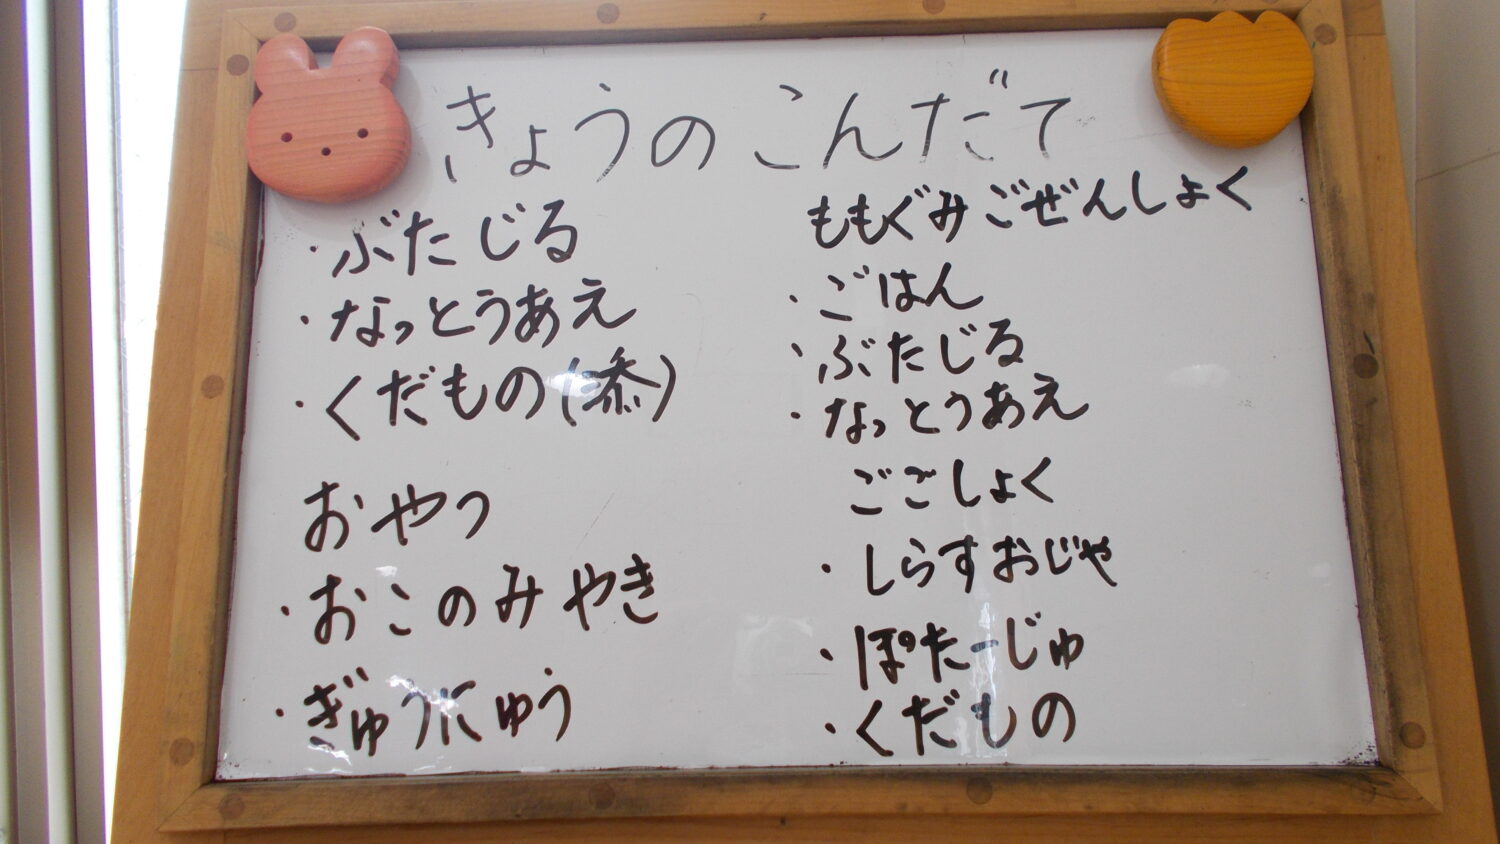 きょうのこんだて
・ぶたじる
・なっとうあえ
・くだもの(添)
おやつ
・おこのみやき
・ぎゅうにゅう
ももぐみごぜんしょく
・ごはん
・ぶたじる
・なっとうあえ
ごごしょく
・しらすおじや
・ぽたーじゅ
・くだもの